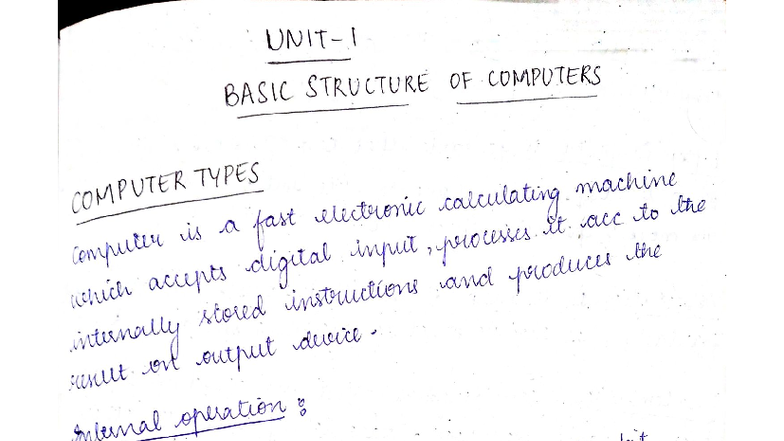 UNIT-1
BASIC STRUCTURE OF COMPUTERS
COMPUTER TYPES
Computer is a fast electronic calculating machine
which accepts digital input, processes it acc to the
internally stored instructions and produces the
result on output device.
Internal operation :